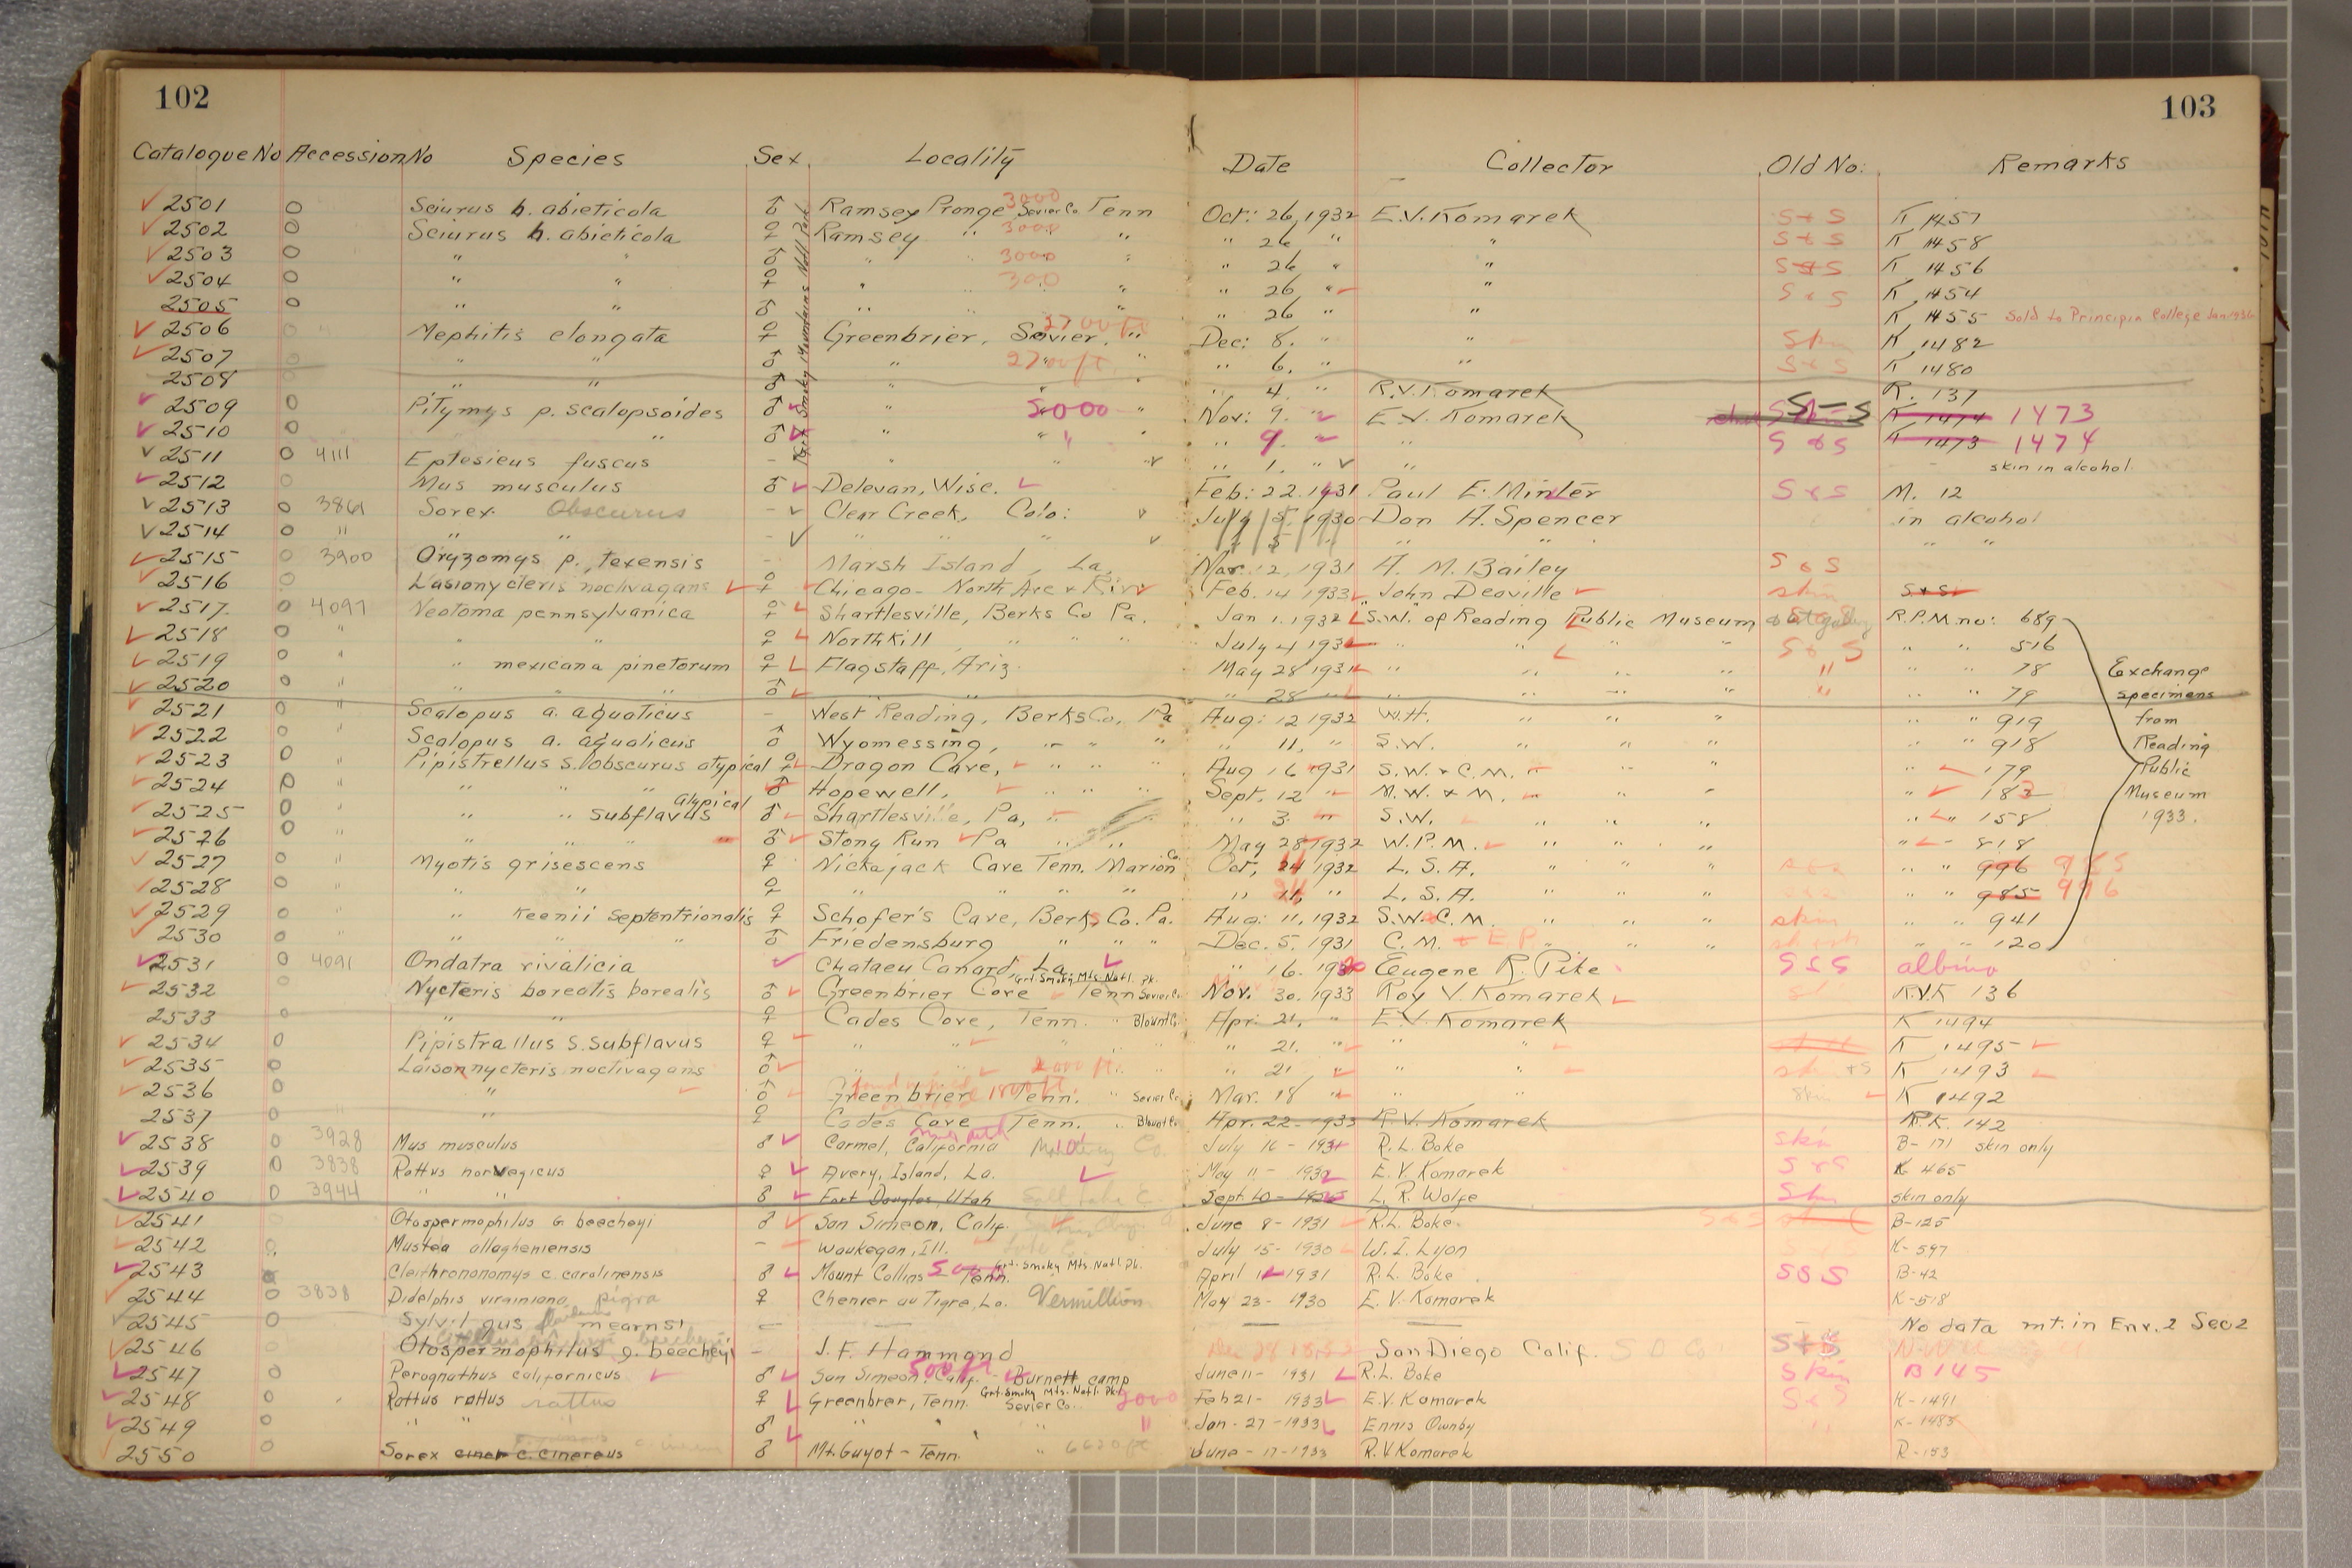 102
103
Catalogue No Accession No Species Sex Locality Date Collector Old No: Remarks
Grt. Smoky Mountains Natl Park
2501 O Sciurus h. abieticola ♂ Ramsey Pronge 3000 Sevier Co. Tenn Oct: 26, 1932 E.V. Komarek S+S K 1457
2502 O Sciurus h. abieticola ♀ Ramsey " 3000 " " 26 " " S+S K 1458
2503 O " " ♂ " " 3000 " " 26 " " S+S K 1456
2504 O " " ♀ " " 300 " " 26 " " S+S K 1454
2505 O " " ♂ " " " " 26 " " K 1455 Sold to Principia College Jan 1936
2506 O Mephitis elongata ♀ Greenbrier, Sevier, 2700 ft " Dec: 8. " " Sk K 1482
2507 O " " ♂ " 2700 ft. " " 6. " " S+S K 1480
2508 O " " ♂ " " " " 4. " R.V. Komarek R. 137
2509 O Pitymys p. scalopsoides ♂ " 5000 " Nov: 9. " E.V. Komarek S-S K 1474 1473
2510 O " " ♂ " " " " 9. " " S+S K 1473 1474
2511 O 4111 Eptesicus fuscus - " " " 1. " " skin in alcohol.
2512 O Mus musculus ♂ Delevan, Wisc. Feb: 22. 1931 Paul E. Minter S+S M. 12
2513 O 3861 Sorex Obscurus - Clear Creek, Colo: July 5, 1930 Don A. Spencer in alcohol
2514 O " " " - " " " " 5 " " " " "
2515 O 3900 Oryzomys p. texensis - Marsh Island, La. Mar. 12, 1931 A. M. Bailey S+S
2516 O Lasionycteris noctivagans ♀ Chicago - North Ave + River Feb. 14 1933 John Deoville skin S+S
2517 O 4097 Neotoma pennsylvanica ♀ Shartlesville, Berks Co Pa. Jan 1. 1932 "S.W." of Reading Public Museum R.P.M. no: 689
2518 O " " " ♀ Northkill " " " July 4 1931 " " " S+S " " 516
2519 O " " mexicana pinetorum ♀ Flagstaff, Ariz. May 28 1931 " " " " " " 78
2520 O " " " " ♂ " " " 28 " " " " " " " 79
Exchange specimens from Reading Public Museum 1933.
2521 O " Scalopus a. aquaticus - West Reading, Berks Co, Pa Aug: 12 1932 W.H. " " " " " 919
2522 O " Scalopus a. aquaticus ♂ Wyomessing, " " " " 11, " S.W. " " " " " 918
2523 O " Pipistrellus s. obscurus atypical ♀ Dragon Cave, " " " Aug 16 1931 S.W. + C.M. " " " " 179
2524 O " " " " ♂ Hopewell, " " " Sept. 12 " M.W. + M. " " " " 183
2525 O " " " subflavus atypical ♂ Shartlesville, Pa, " 3 " S.W. " " " " 158
2526 O " " " " ♂ Stony Run Pa " " May 28 1932 W.P.M. " " " " 818
2527 O " Myotis grisescens ♀ Nickajack Cave Tenn. Marion Co. Oct, 24 1932 L. S. A. " " " " " 996 985
2528 O " " " ♀ " " " " " 24 " L. S. A. " " " " " 985 996
2529 O " " keenii septentrionalis ♀ Schofer's Cave, Berks Co. Pa. Aug: 11, 1932 S.W. & C.M. " " " skin " " 941
2530 O " " " " ♂ Friedensburg " " " Dec. 5, 1931 C. M. + E. P. " " " " " 120
2531 O 4091 Ondatra rivalicia Chataeu Canard, La " 16. 1930 Eugene R. Pike S S S albino
2532 O Nycteris borealis borealis ♂ Greenbrier Cove Tenn Grt. Smoky Mts. Natl. Pk. Sevier Co. Nov. 30. 1933 Roy V. Komarek R.V.K 136
2533 O " " ♀ Cades Cove, Tenn. " Blount Co. Apr: 21, " E.V. Komarek K 1494
2534 O Pipistrallus s. subflavus ♀ " " " " " 21. " " " K 1495
2535 O Laisonnycteris noctivagans ♂ " " 2000 ft. " " 21 " " " sk + S K 1493
2536 O " ♂ Greenbrier 1800 ft. Tenn. " Sevier Co. Mar. 18 " " " Skin K 1492
2537 O " ♀ Cades Cove Tenn. " Blount Co Apr. 22 - 1933 R.V. Komarek R.K. 142
2538 O 3928 Mus musculus ♂ Carmel, California Monterey Co. July 16 - 1931 R.L. Boke skin B- 171 skin only
2539 O 3838 Rattus norvegicus ♀ Avery, Island, La. May 11 - 1932 E. V. Komarek S+S K 465
2540 O 3944 " " ♂ Fort Douglas, Utah Salt Lake C Sept 10 - L. R. Wolfe Skin skin only
2541 O Otospermophilus G beecheyi ♂ San Simeon, Calif. June 8 - 1931 R.L. Boke. S+S B-125
2542 O Mustea allagheniensis - Waukegan, Ill. July 15 - 1930 W. I. Lyon K- 597
2543 Cleithrononomys c. carolinensis ♂ Mount Collins - Tenn. Grt. Smoky Mts. Natl. Pk. April 1 1931 R.L. Boke S S S B-42
2544 O 3838 Didelphis virginiana pigra ♀ Chenier au Tigre, La. Vermillion May 23 - 1930 E. V. Komarek K-518
2545 O Sylvilagus mearnsi - - - - No data mt. in Env. 2 Sec 2
2546 Otospermophilus g. beecheyi - J. F. Hammond San Diego Calif. S D Co. S+S
2547 O Perognathus californicus ♂ San Simeon, Calif - Burnett camp 500 ft June 11 - 1931 R.L. Boke Skin B 145
2548 O Rattus rattus rattus ♀ Greenbrer, Tenn. Grt. Smoky Mts. Natl. Pk. Sevier Co. 2000 Feb 21 - 1933 E.V. Komarek S+S K-1491
2549 O " " " ♂ " " " " Jan - 27 - 1933 Ennis Ownby K-1485
2550 O Sorex ciner c. cinereus ♂ Mt. Guyot - Tenn. " 6620 ft June - 17 - 1933 R.V. Komarek R-153